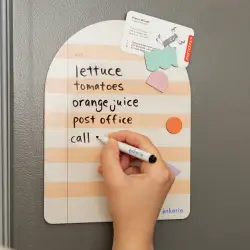 lettuce
tomatoes
orange juice
post office
call
pokorio